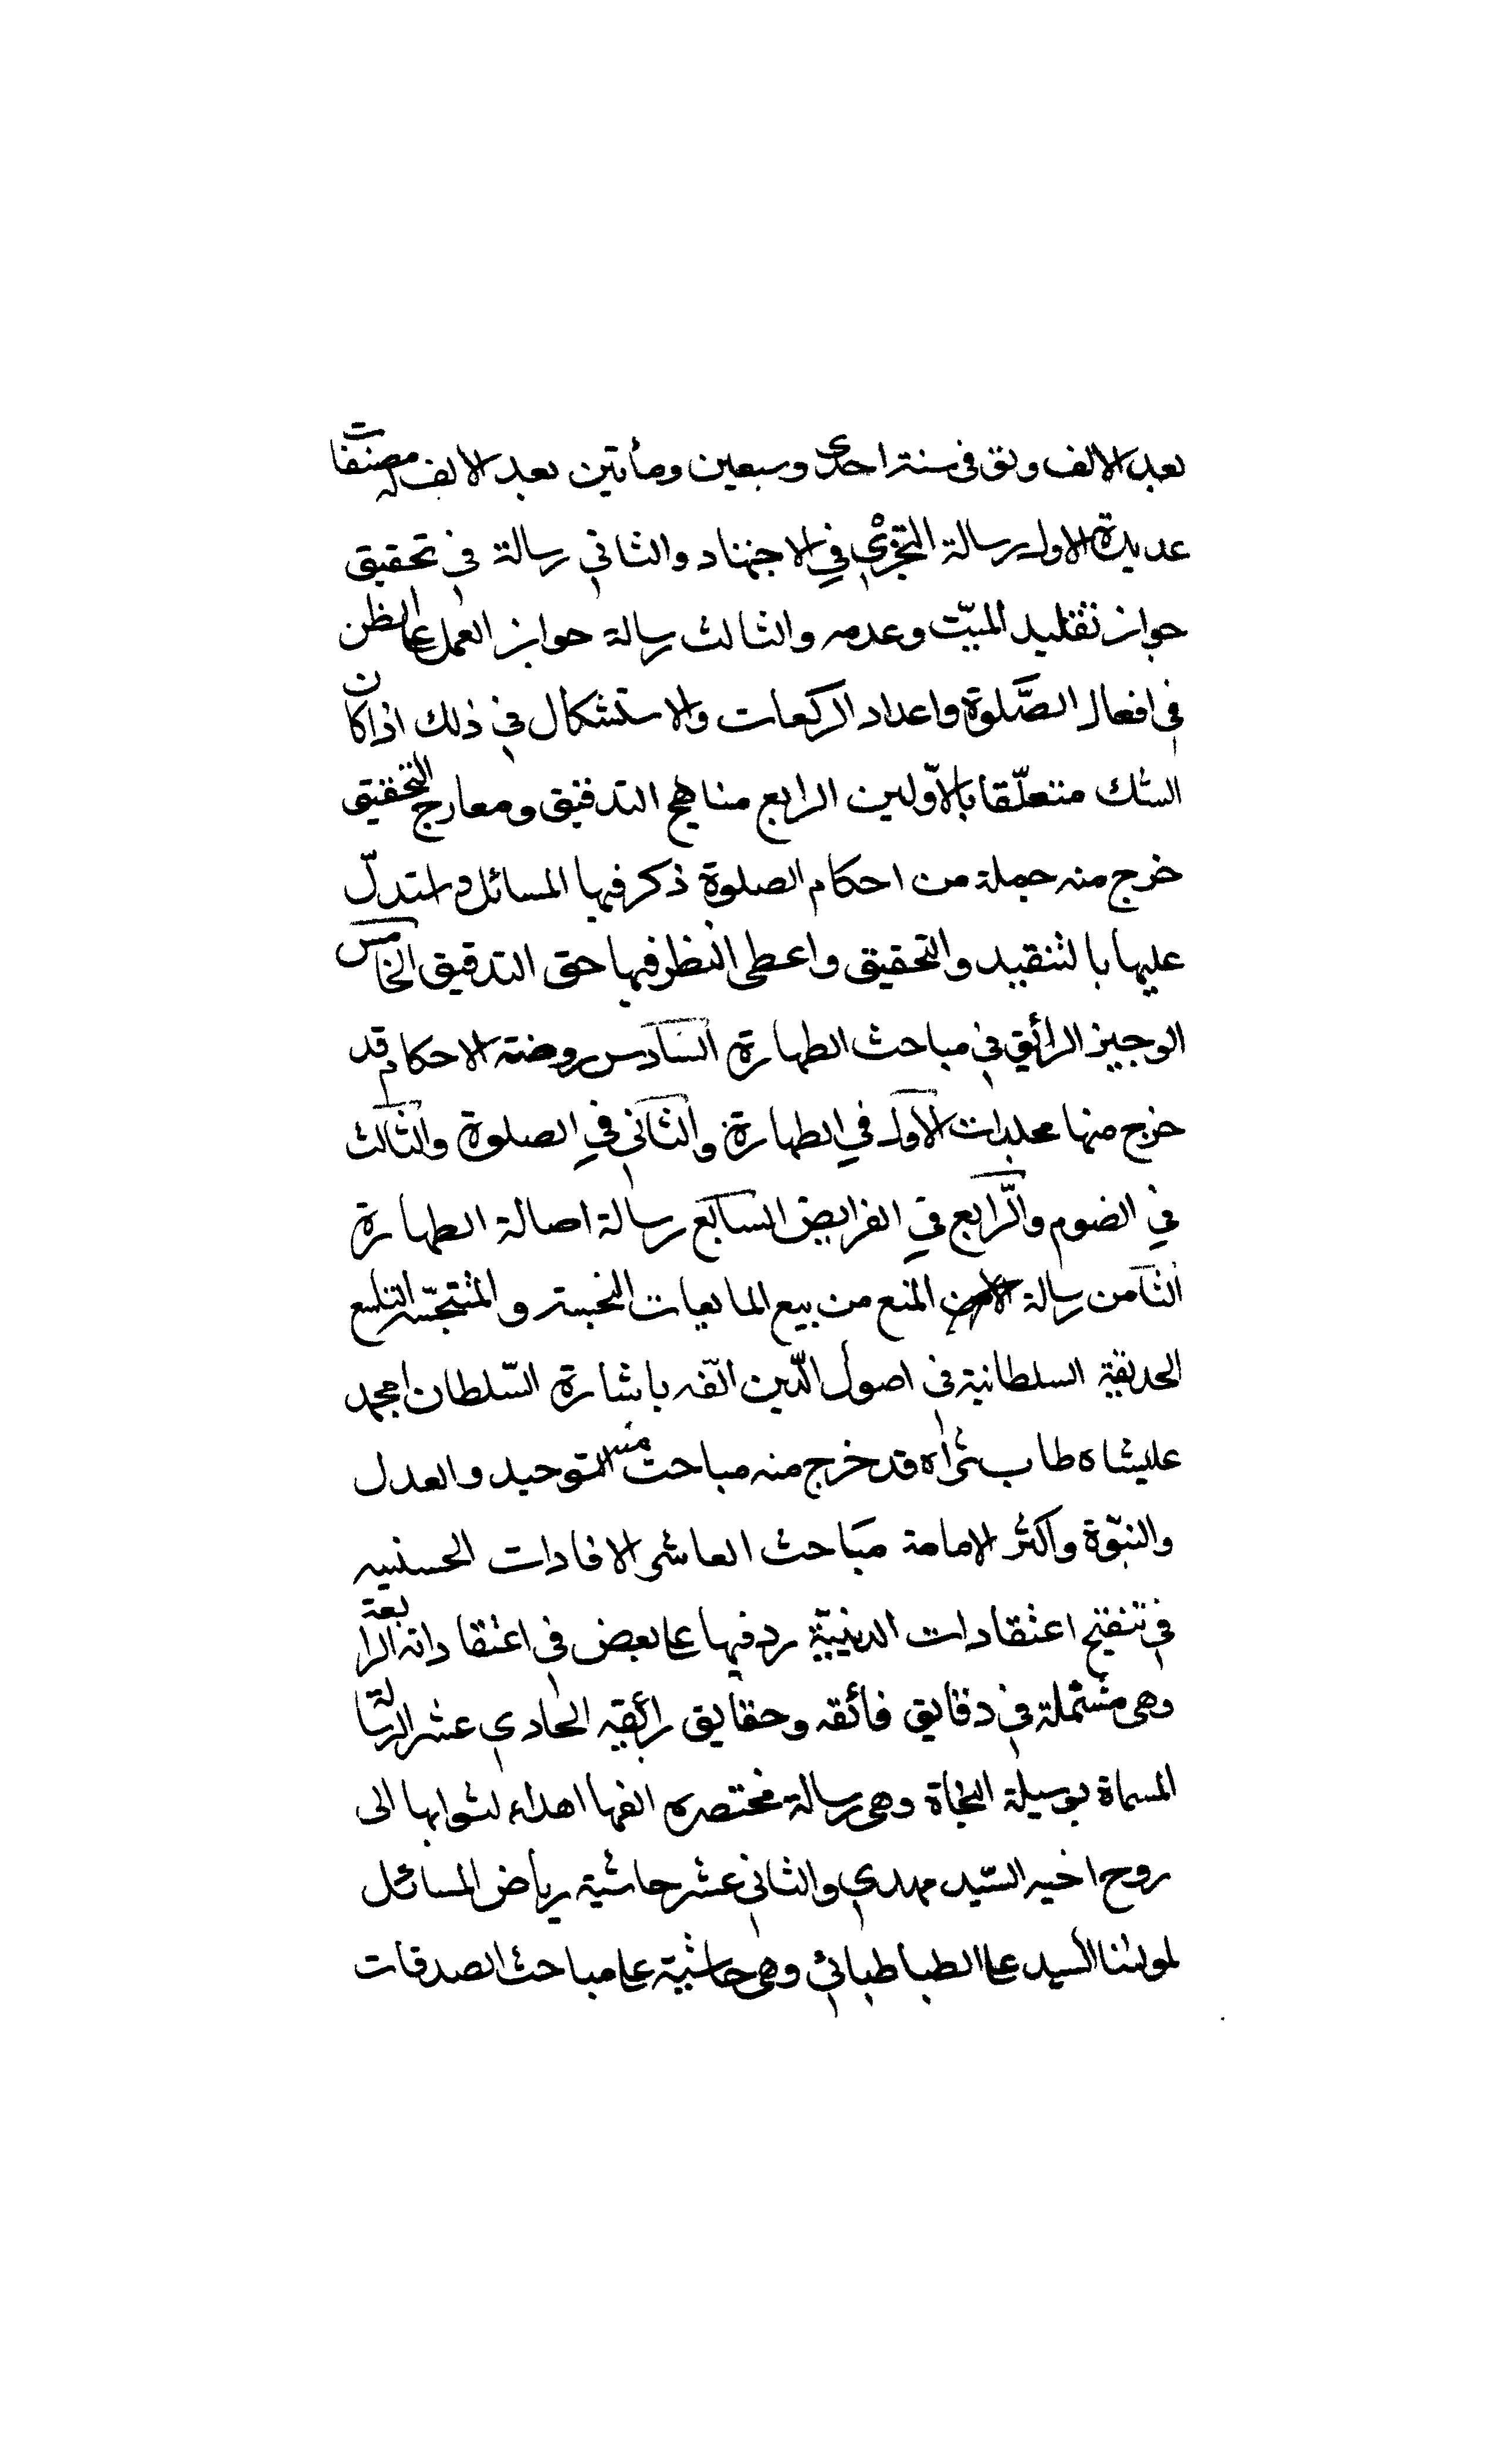 بعد الالف وتق فى سنة احدى وسبعين ومأتين بعد الالف له مصنفات
عديدة الاول رسالة التجزّي في الاجتهاد والثاني رسالة في تحقيق
جواز تقليد الميّت وعدمه والثالث رسالة جواز العمل على الظن
فى افعال الصّلوة واعداد الركعات والاستشكال في ذلك اذا كان
الشك متعلّقا بالاوّلين الرابع مناهج التدقيق ومعارج التحقيق
خرج منه جملة من احكام الصلوة ذكر فيها المسائل واستدلّ
عليها بالتنقيد والتحقيق واعطى النظر فيها حق التدقيق الخامس
الوجيز الرائق في مباحث الطهارة السادس روضة الاحكام قد
خرج منها مجلدات الاول في الطهارة والثاني في الصلوة والثالث
في الصوم والرّابع في الفرايض السابع رسالة اصالة الطهارة
الثامن رسالة المنع من بيع المايعات النجسة والمتنجّسة التاسع
الحديقة السلطانية في اصول الدّين الّفه باشارة السّلطان امجد
عليشاه طاب ثراه قد خرج منه مباحث التوحيد والعدل
والنبّوة واكثر الامامة مباحث العاشر الافادات الحسنيه
في تنقيح اعتقادات الدينيّة رد فيها على بعض فى اعتقاداته الرابعة
وهى مشتملة في دقايق فائقه وحقايق رائقه الحادي عشر الرسالة
المسماة بوسيلة النجاة وهى رسالة مختصره الفها اهداء لثوابها الى
روح اخيه السّيد مهدي والثاني عشر حاشية رياض المسائل
لمولىنا السيد على الطباطبائي وهى حاشية على مباحث الصدقات